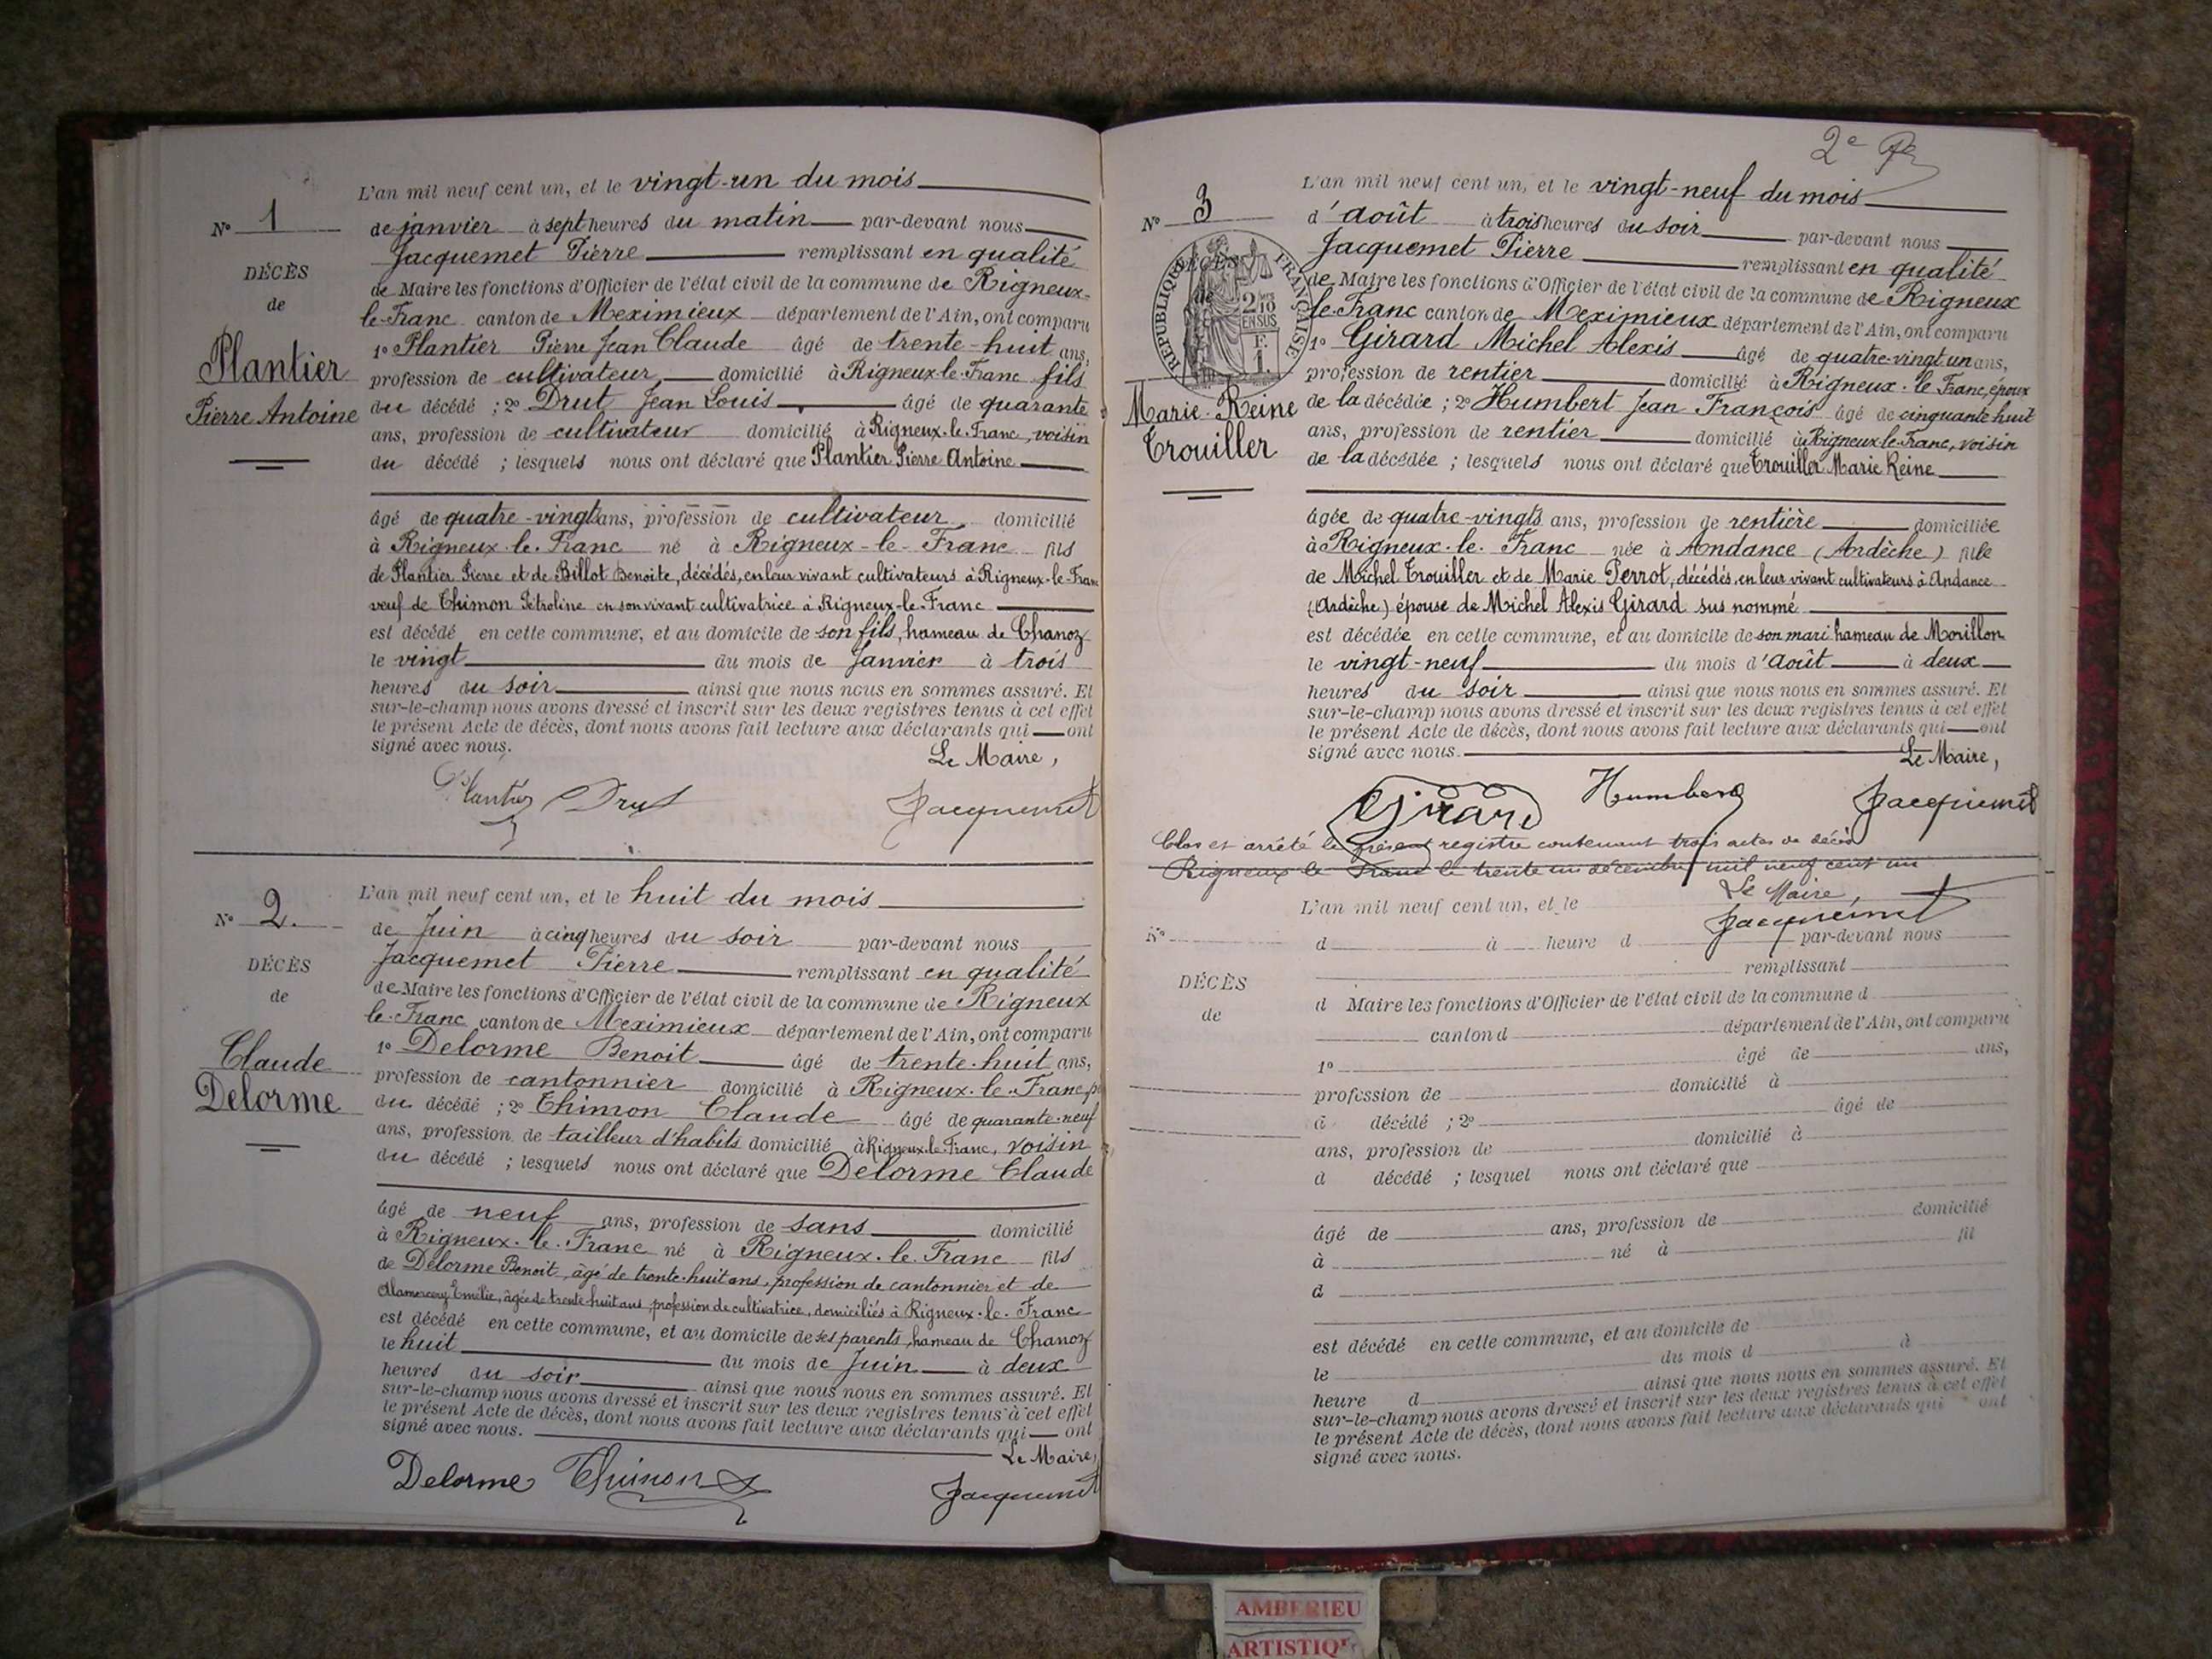 L'an mil neuf cent un, et le vingt-un du mois
N° 1
de janvier à sept heures du matin par-devant nous
Jacquemet Pierre remplissant en qualité
DÉCÈS
de Maire les fonctions d'Officier de l'état civil de la commune de Rigneux-
de
le-Franc canton de Meximieux département de l'Ain, ont comparu
Plantier
1° Plantier Pierre Jean Claude âgé de trente-huit ans,
profession de cultivateur domicilié à Rigneux-le-Franc fils
Pierre Antoine
du décédé ; 2° Drut Jean Louis âgé de quarante
ans, profession de cultivateur domicilié à Rigneux-le-Franc, voisin
du décédé ; lesquels nous ont déclaré que Plantier Pierre Antoine
âgé de quatre-vingts ans, profession de cultivateur domicilié
à Rigneux-le-Franc né à Rigneux-le-Franc fils
de Plantier Pierre et de Billot Benoite, décédés, en leur vivant cultivateurs à Rigneux-le-Franc
veuf de Thimon Pétroline en son vivant cultivatrice à Rigneux-le-Franc
est décédé en cette commune, et au domicile de son fils, hameau de Chanoz
le vingt du mois de Janvier à trois
heures du soir ainsi que nous nous en sommes assuré. Et
sur-le-champ nous avons dressé et inscrit sur les deux registres tenus à cet effet
le présent Acte de décès, dont nous avons fait lecture aux déclarants qui ont
signé avec nous.
Le Maire,
Plantier Drut Jacquemet
L'an mil neuf cent un, et le huit du mois
N° 2.
de Juin à cinq heures du soir par-devant nous
Jacquemet Pierre remplissant en qualité
DÉCÈS
de Maire les fonctions d'Officier de l'état civil de la commune de Rigneux
de
le-Franc canton de Meximieux département de l'Ain, ont comparu
Claude
1° Delorme Benoit âgé de trente-huit ans,
profession de cantonnier domicilié à Rigneux-le-Franc
Delorme
du décédé ; 2° Thimon Claude âgé de quarante-neuf
ans, profession de tailleur d'habits domicilié à Rigneux-le-Franc, voisin
du décédé ; lesquels nous ont déclaré que Delorme Claude
âgé de neuf ans, profession de sans domicilié
à Rigneux-le-Franc né à Rigneux-le-Franc fils
de Delorme Benoit, âgé de trente-huit ans, profession de cantonnier et de
Emélie, âgée de trente-huit ans, profession de cultivatrice, domiciliés à Rigneux-le-Franc
est décédé en cette commune, et au domicile de ses parents, hameau de Chanoz
le huit du mois de Juin à deux
heures du soir ainsi que nous nous en sommes assuré. Et
sur-le-champ nous avons dressé et inscrit sur les deux registres tenus à cet effet
le présent Acte de décès, dont nous avons fait lecture aux déclarants qui ont
signé avec nous.
Le Maire,
Delorme Thimon Jacquemet
2e
L'an mil neuf cent un, et le vingt-neuf du mois
N° 3
d'août à trois heures du soir par-devant nous
Jacquemet Pierre remplissant en qualité
DÉCÈS
de
RÉPUBLIQUE FRANÇAISE
2/10 EN SUS
F. 1.
de Maire les fonctions d'Officier de l'état civil de la commune de Rigneux
le-Franc canton de Meximieux département de l'Ain, ont comparu
1° Girard Michel Alexis âgé de quatre-vingt un ans,
profession de rentier domicilié à Rigneux-le-Franc, époux
Marie-Reine
de la décédée ; 2° Humbert Jean François âgé de cinquante huit
Trouiller
ans, profession de rentier domicilié à Rigneux-le-Franc, voisin
de la décédée ; lesquels nous ont déclaré que Trouiller Marie Reine
âgée de quatre-vingts ans, profession de rentière domiciliée
à Rigneux-le-Franc née à Andance (Ardèche) fille
de Michel Trouiller et de Marie Perrot, décédés, en leur vivant cultivateurs à Andance
(Ardèche) épouse de Michel Alexis Girard sus nommé
est décédée en cette commune, et au domicile de son mari hameau de Morillon
le vingt-neuf du mois d'août à deux
heures du soir ainsi que nous nous en sommes assuré. Et
sur-le-champ nous avons dressé et inscrit sur les deux registres tenus à cet effet
le présent Acte de décès, dont nous avons fait lecture aux déclarants qui ont
signé avec nous.
Le Maire,
Girard Humbert Jacquemet
Clos et arrêté le présent registre contenant trois actes de décès
Rigneux-le-Franc le trente un décembre mil neuf cent un
Le Maire,
Jacquemet
L'an mil neuf cent un, et le
N°
d à heure d par-devant nous
remplissant
DÉCÈS
d Maire les fonctions d'Officier de l'état civil de la commune d
de
canton d département de l'Ain, ont comparu
1° âgé de ans,
profession de domicilié à
d décédé ; 2° âgé de
ans, profession de domicilié à
d décédé ; lesquel nous ont déclaré que
âgé de ans, profession de domicilié
à né à fil
d
est décédé en cette commune, et au domicile de
le du mois d à
heure d ainsi que nous nous en sommes assuré. Et
sur-le-champ nous avons dressé et inscrit sur les deux registres tenus à cet effet
le présent Acte de décès, dont nous avons fait lecture aux déclarants qui ont
signé avec nous.
AMBERIEU
ARTISTIQU